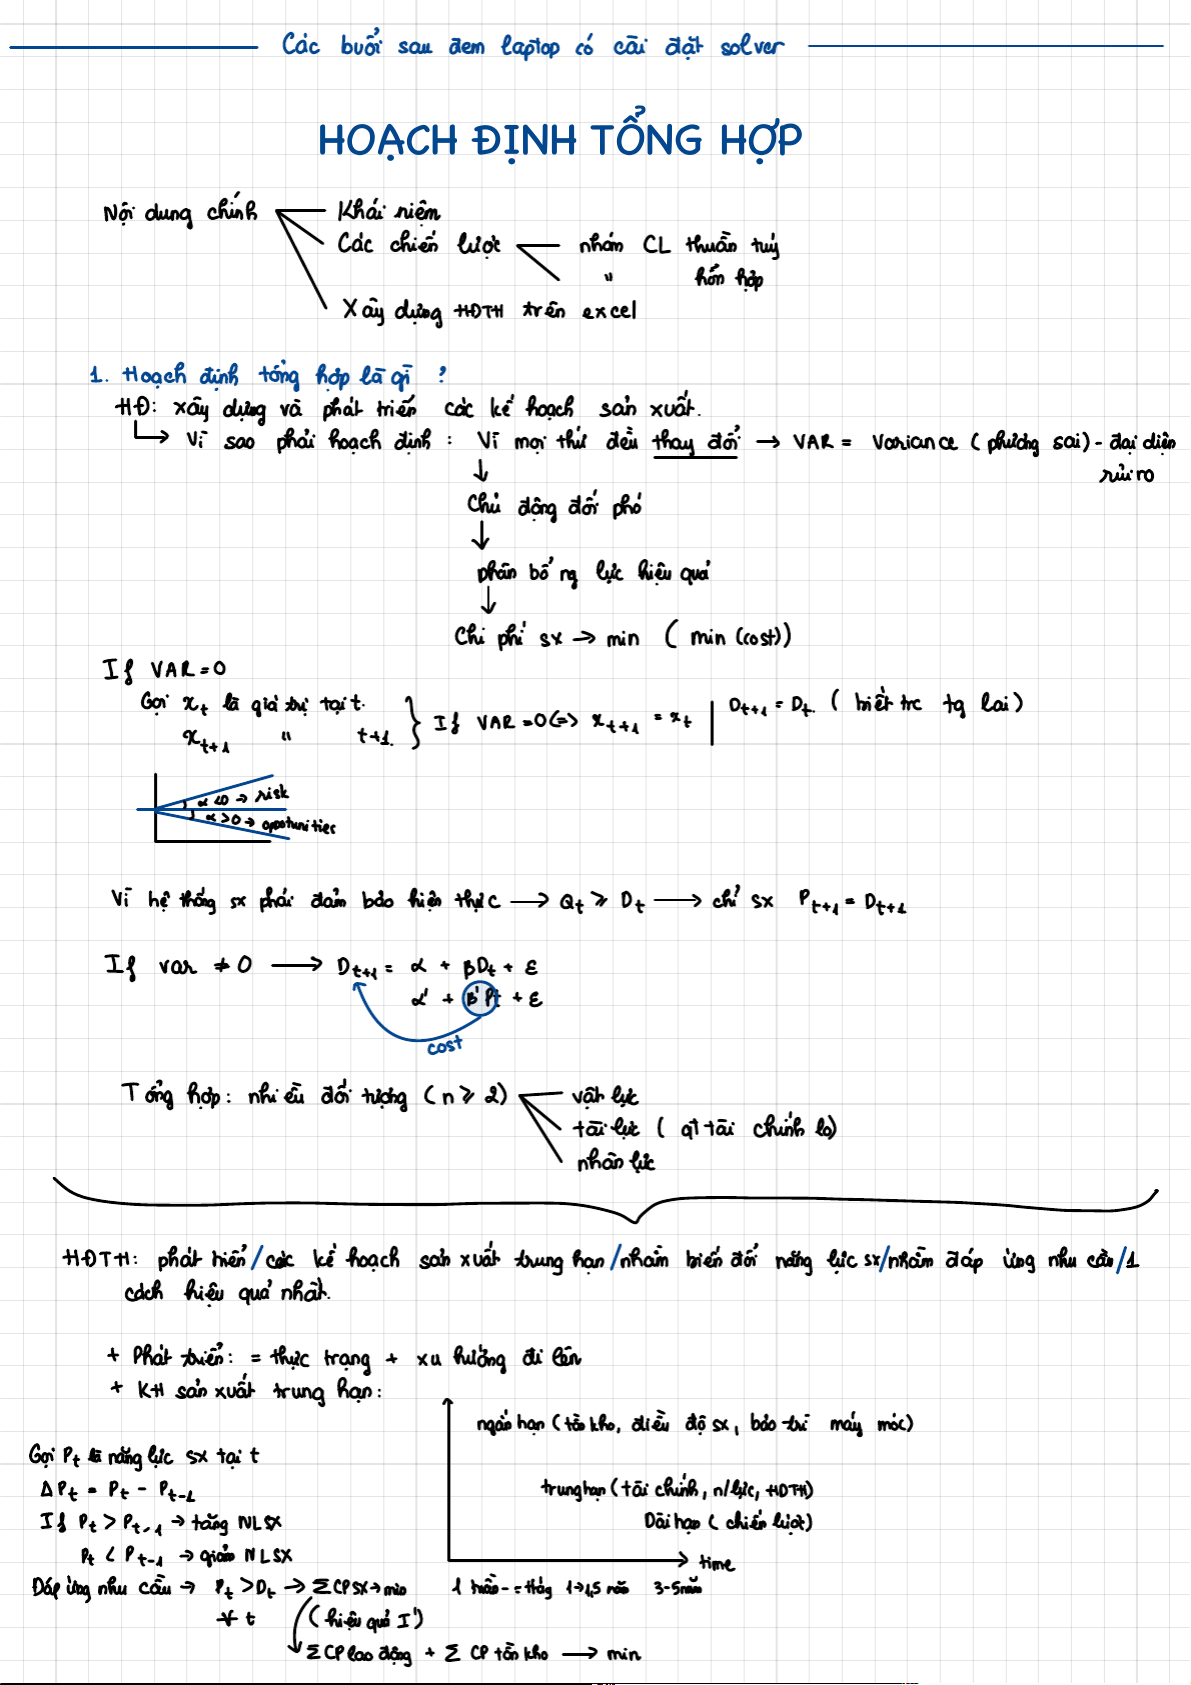 Các buổi sau đem laptop có cài đặt solver
HOẠCH ĐỊNH TỔNG HỢP
Nội dung chính
Khái niệm
Các chiến lược
nhóm CL thuần tuý
" hỗn hợp
Xây dựng HĐTH trên excel
1. Hoạch định tổng hợp là gì ?
HĐ: xây dựng và phát triển các kế hoạch sản xuất.
Vì sao phải hoạch định : Vì mọi thứ đều thay đổi → VAR = Variance ( phương sai) - đại diện
rủi ro
Chủ động đối phó
phân bổ ng lực hiệu quả
Chi phí sx → min ( min (cost))
If VAR = 0
Gọi xₜ là giá trị tại t.
xₜ₊₁ " t+1.
If VAR = 0 (=> xₜ₊₁ = xₜ
Dₜ₊₁ = Dₜ. ( biết trc tg lai)
α <0 → risk
α >0 → opportunities
Vì hệ thống sx phải đảm bảo hiện thực → Qₜ ⩾ Dₜ → chỉ sx Pₜ₊₁ = Dₜ₊₁
If var ≠ 0 → Dₜ₊₁ = α + βDₜ + ε
α' + β'Pₜ + ε
cost
Tổng hợp: nhiều đối tượng ( n ⩾ 2)
vật lực
tài lực ( qt tài chính lo)
nhân lực
HĐTH: phát triển / các kế hoạch sản xuất trung hạn / nhằm biến đổi năng lực sx / nhằm đáp ứng nhu cầu / 1
cách hiệu quả nhất.
+ Phát triển: = thực trạng + xu hướng đi lên
+ KH sản xuất trung hạn :
ngắn hạn ( tồn kho, điều độ sx, bảo trì máy móc)
Gọi Pₜ là năng lực sx tại t
ΔPₜ = Pₜ - Pₜ₋₁
trung hạn ( tài chính, n/lực, HĐTH)
If Pₜ > Pₜ₋₁ → tăng NLSX
Dài hạn ( chiến lược)
Pₜ < Pₜ₋₁ → giảm NLSX
time
Đáp ứng nhu cầu → Pₜ > Dₜ → ΣCPSX → min
1 tuần - = thág 1→1,5 năm 3-5 năm
∀ t
( hiệu quả I')
ΣCP lao động + Σ CP tồn kho → min